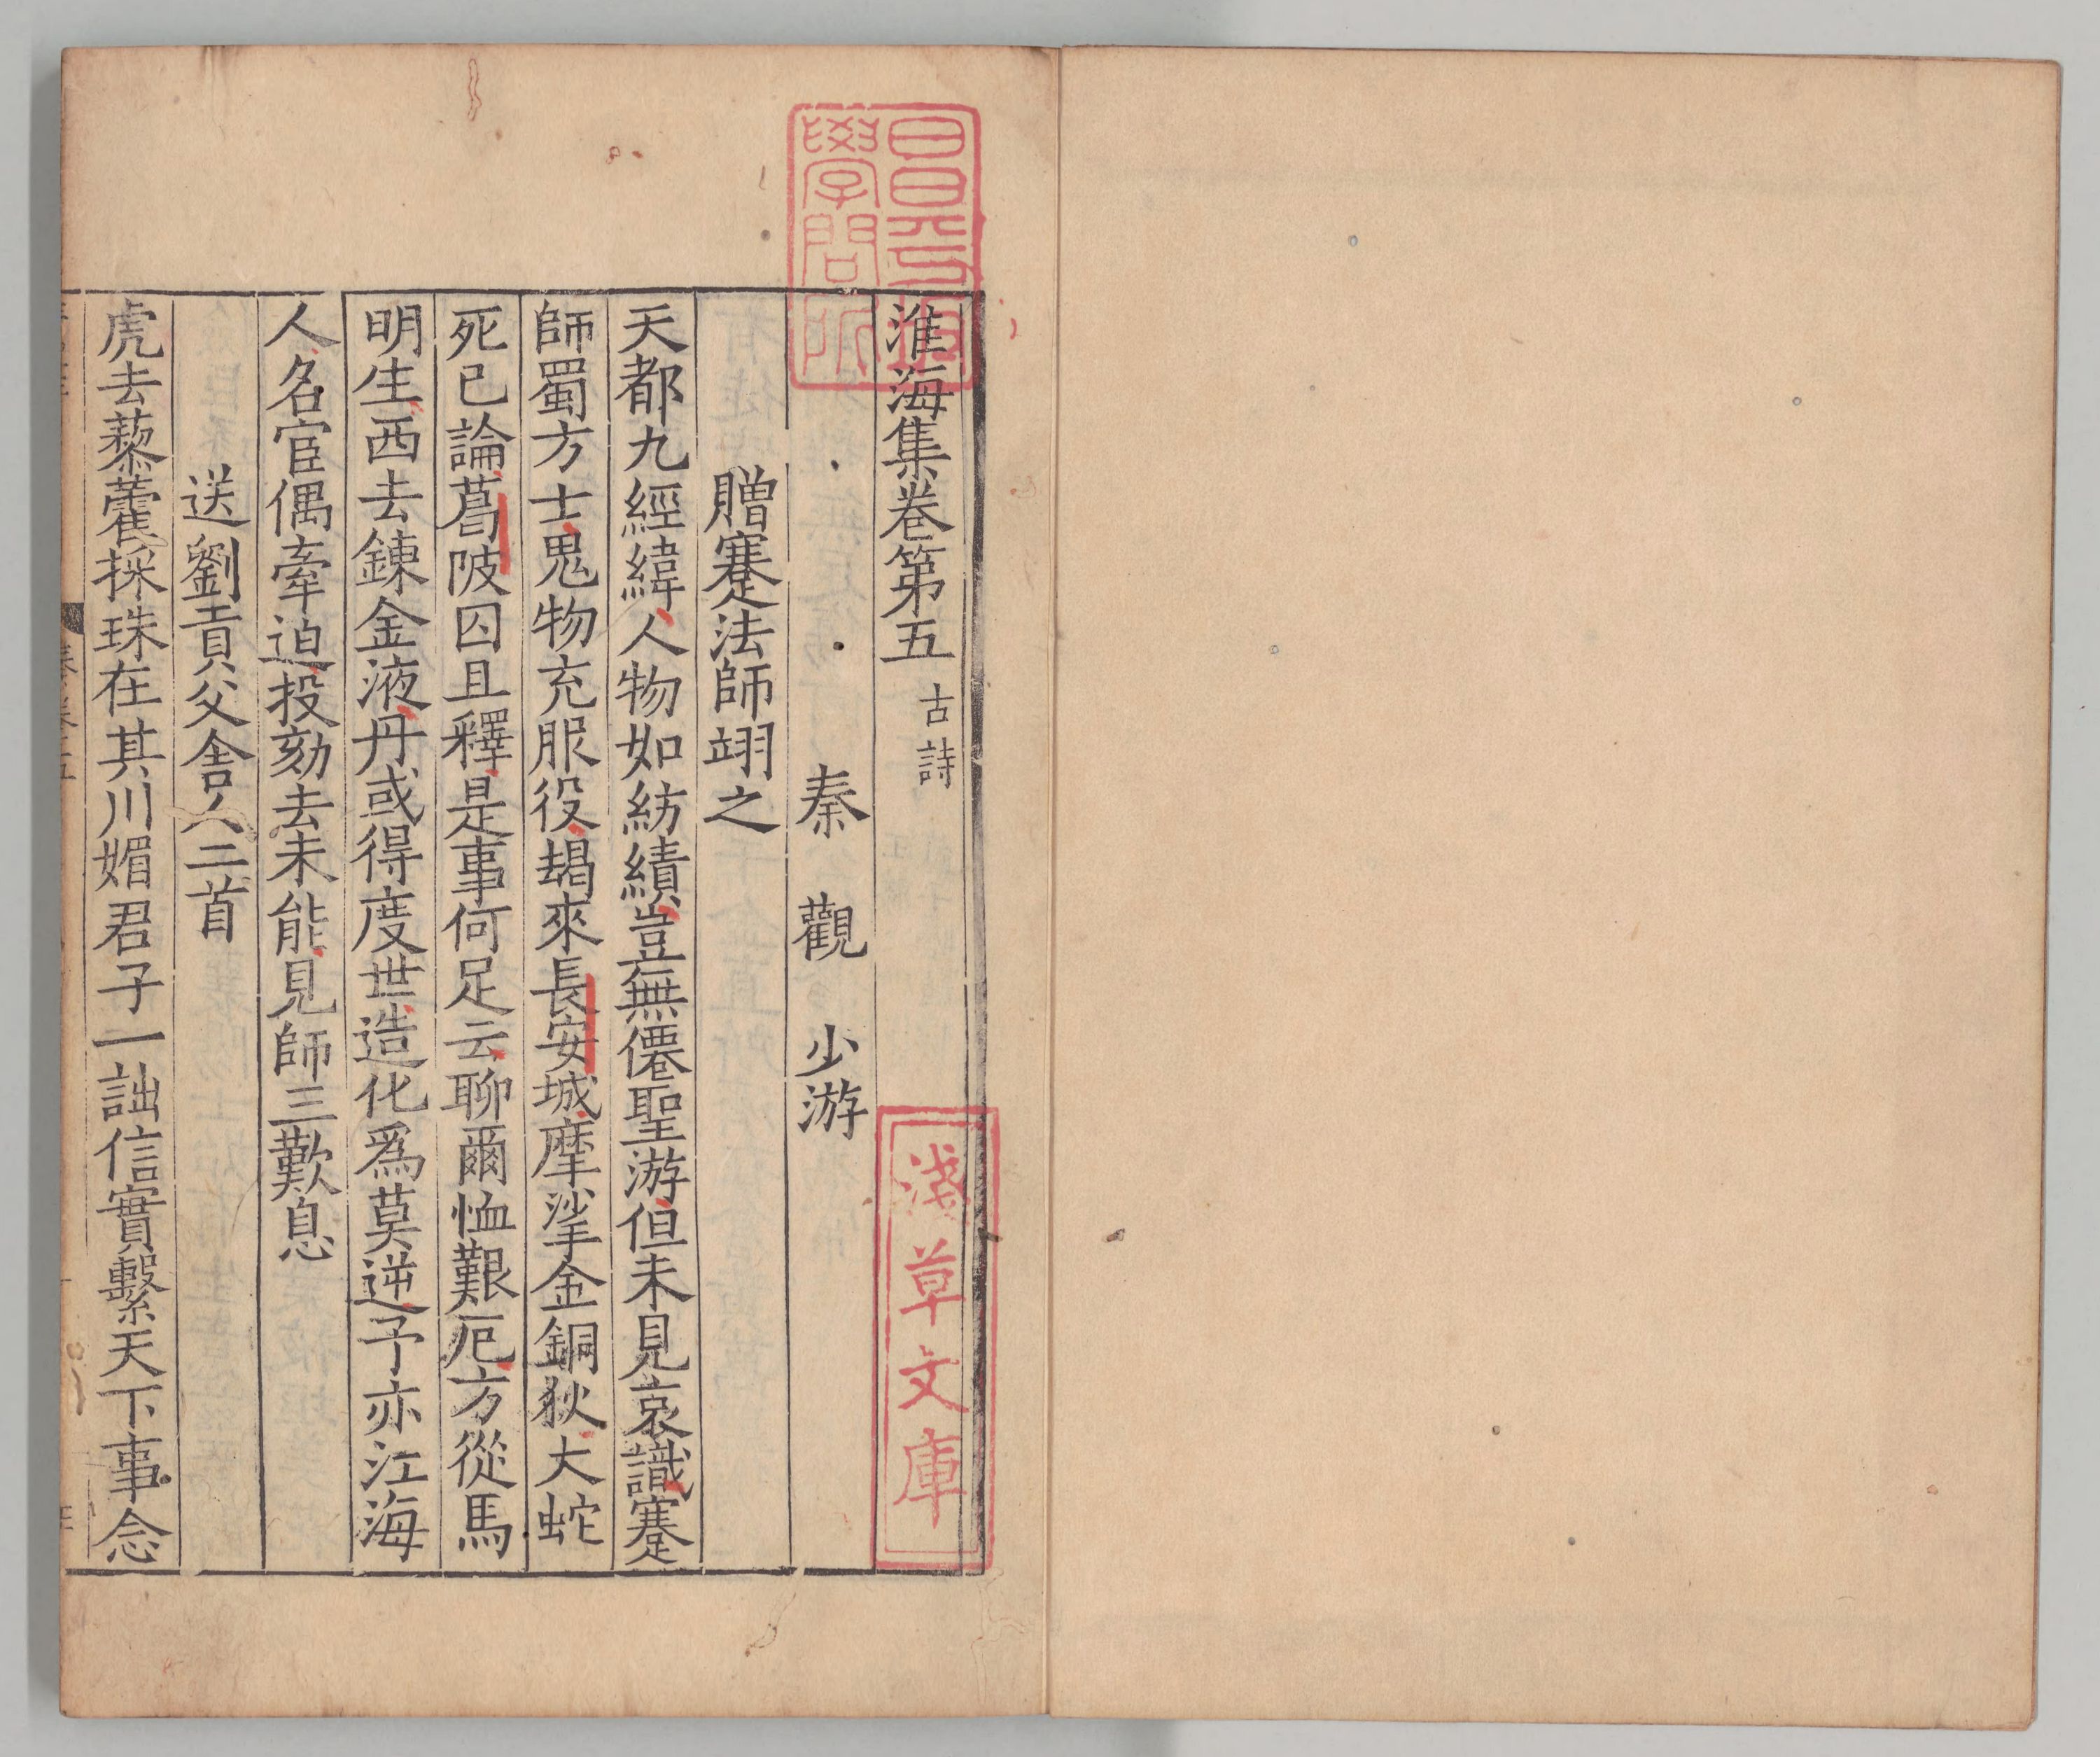 淮海集卷第五 古詩
秦觀少游
贈蹇法師翊之
天都九經緯人物如紡績豈無僊聖游但未見哀識蹇
師蜀方士鬼物充服役朅來長安城摩挲金銅狄大蛇
死已論葛陂囚且釋是事何足云聊爾恤艱厄方從馬
明生西去鍊金液丹或得度世造化爲莫逆予亦江海
人名宦偶牽迫投劾去未能見師三歎息
送劉貢父舍人二首
虎去藜藿採珠在其川媚君子一詘信實繫天下事念
昌平坂
學問所
淺草文庫